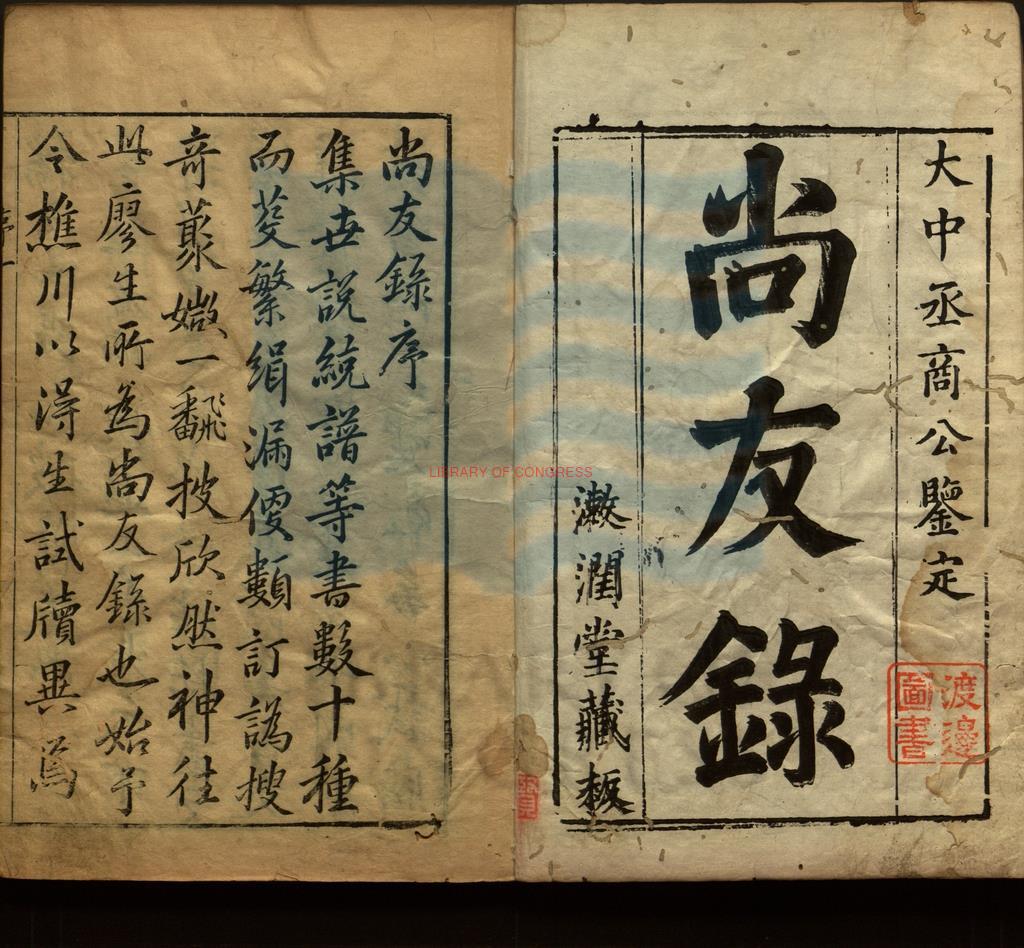 大中丞商公鑒定
尚友錄
漱潤堂藏板
渡邊
圖書
尚友錄序
集世說統譜等書數十種
而芟繁緝漏優纇訂譌搜
奇蒙媺一翻披欣然神往
此廖生所為尚友錄也始予
令樵川以淂生試牘異焉
序一
LIBRARY OF CONGRESS